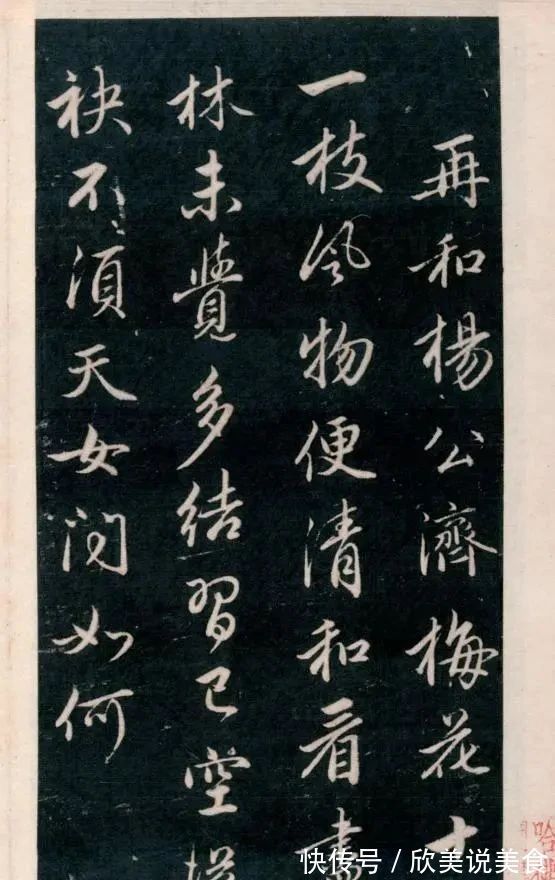 再和楊公濟梅花十
一枝風物便清和看盡
林未覺多結習已空
袂不須天女問如何
快传号／欣美说美食